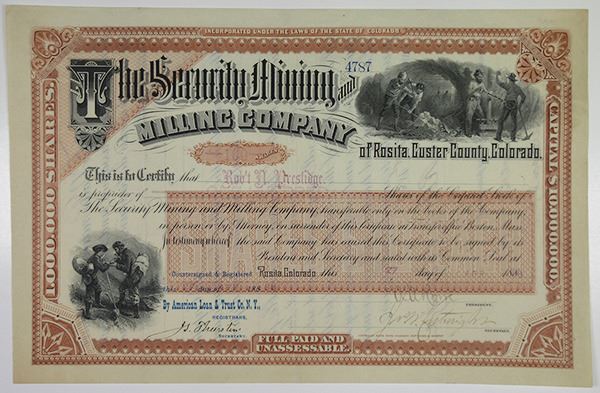 INCORPORATED UNDER THE LAWS OF THE STATE OF COLORADO
4787
The Security Mining and
MILLING COMPANY
of Rosita, Custer County, Colorado.
1,000,000 SHARES.
CAPITAL $10,000,000.
This is to Certify that Rob't N. Preslidge.
is proprietor of Shares of the Capital Stock of
The Security Mining and Milling Company, transferable only on the books of the Company,
in person or by Attorney, on surrender of this Certificate at Transfer Office Boston, Mass.
In testimony whereof the said Company has caused this Certificate to be signed by its
President and Secretary and sealed with its Common Seal at
Countersigned & Registered Rosita, Colorado this 27 day of 188
this day of 188
By American Loan & Trust Co. N.Y.,
REGISTRARS.
PRESIDENT.
SECRETARY.
SECRETARY.
FULL PAID AND
UNASSESSABLE.